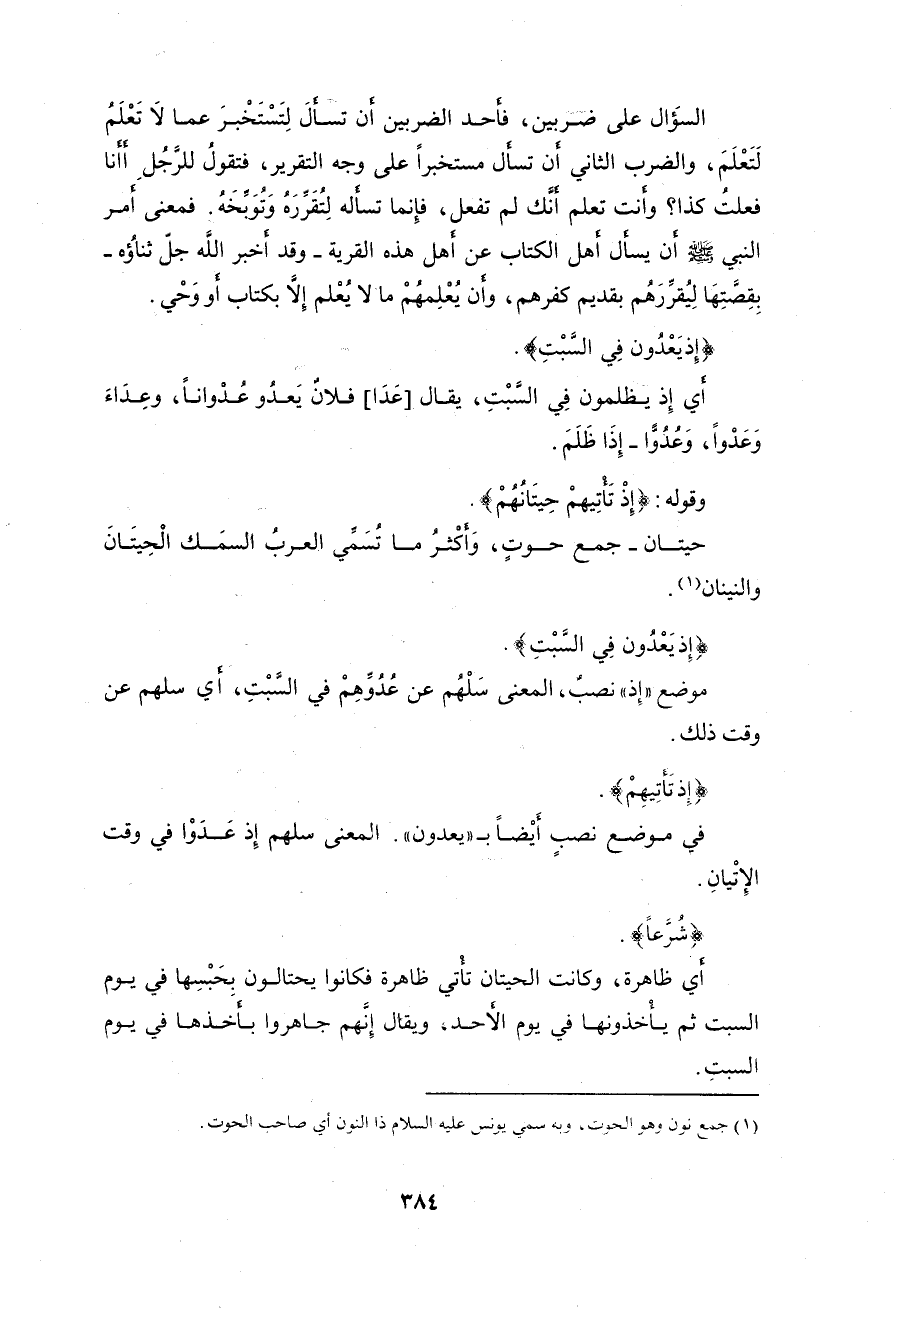 السؤال على ضربين، فأحد الضربين أن تسأل لِتَسْتَخْبِرَ عما لَا تَعْلَمُ
لَتَعْلَمَ، والضرب الثاني أن تسأل مستخبراً على وجه التقرير، فتقولُ للرَّجُلِ أأنا
فعلتُ كذا؟ وأنت تعلم أنَّك لم تفعل، فإنما تسأله لِتُقَرِّرَهُ وَتُوَبِّخَهُ. فمعنى أمر
النبي ﷺ أن يسأل أهل الكتاب عن أهل هذه القرية ـ وقد أخبر اللَّه جلّ ثناؤه ـ
بِقِصَّتِهَا لِيُقرِّرَهُم بقديم كفرهم، وأن يُعْلِمهُمْ ما لا يُعْلم إلَّا بكتاب أو وَحْي.
﴿إذيَعْدُون فِي السَّبْتِ﴾.
أي إذ يظلمون فِي السَّبْتِ، يقال [عَدَا] فلانٌ يَعدُو عُدْواناً، وعِدَاءً
وَعَدْواً، وَعُدُوًّا ـ إذَا ظَلَمَ.
وقوله: ﴿إذْ تَأْتِيهمْ حِيتَانُهُمْ﴾.
حيتان ـ جمع حوتٍ، وَأَكْثرُ ما تُسَمِّي العربُ السمَك الْحِيتَانَ
والنينان(١).
﴿إذيَعْدُون فِي السَّبْتِ﴾.
موضع «إذ» نصبٌ، المعنى سَلْهُم عن عُدُوِّهِمْ في السَّبْتِ، أي سلهم عن
وقت ذلك.
﴿إذ تَأتِيهِمْ﴾.
في موضع نصبٍ أَيْضاً بـ«يعدون». المعنى سلهم إذ عَدَوْا في وقت
الإتْيانِ.
﴿شُرَّعاً﴾.
أي ظاهرة، وكانت الحيتان تأْتي ظاهرة فكانوا يحتالون بِحَبْسِها في يوم
السبت ثم يأْخذونها في يوم الأحد، ويقال إنَّهم جاهروا بأخذها في يوم
السبتِ.
(١) جمع نون وهو الحوت، وبه سمي يونس عليه السلام ذا النون أي صاحب الحوت.
٣٨٤